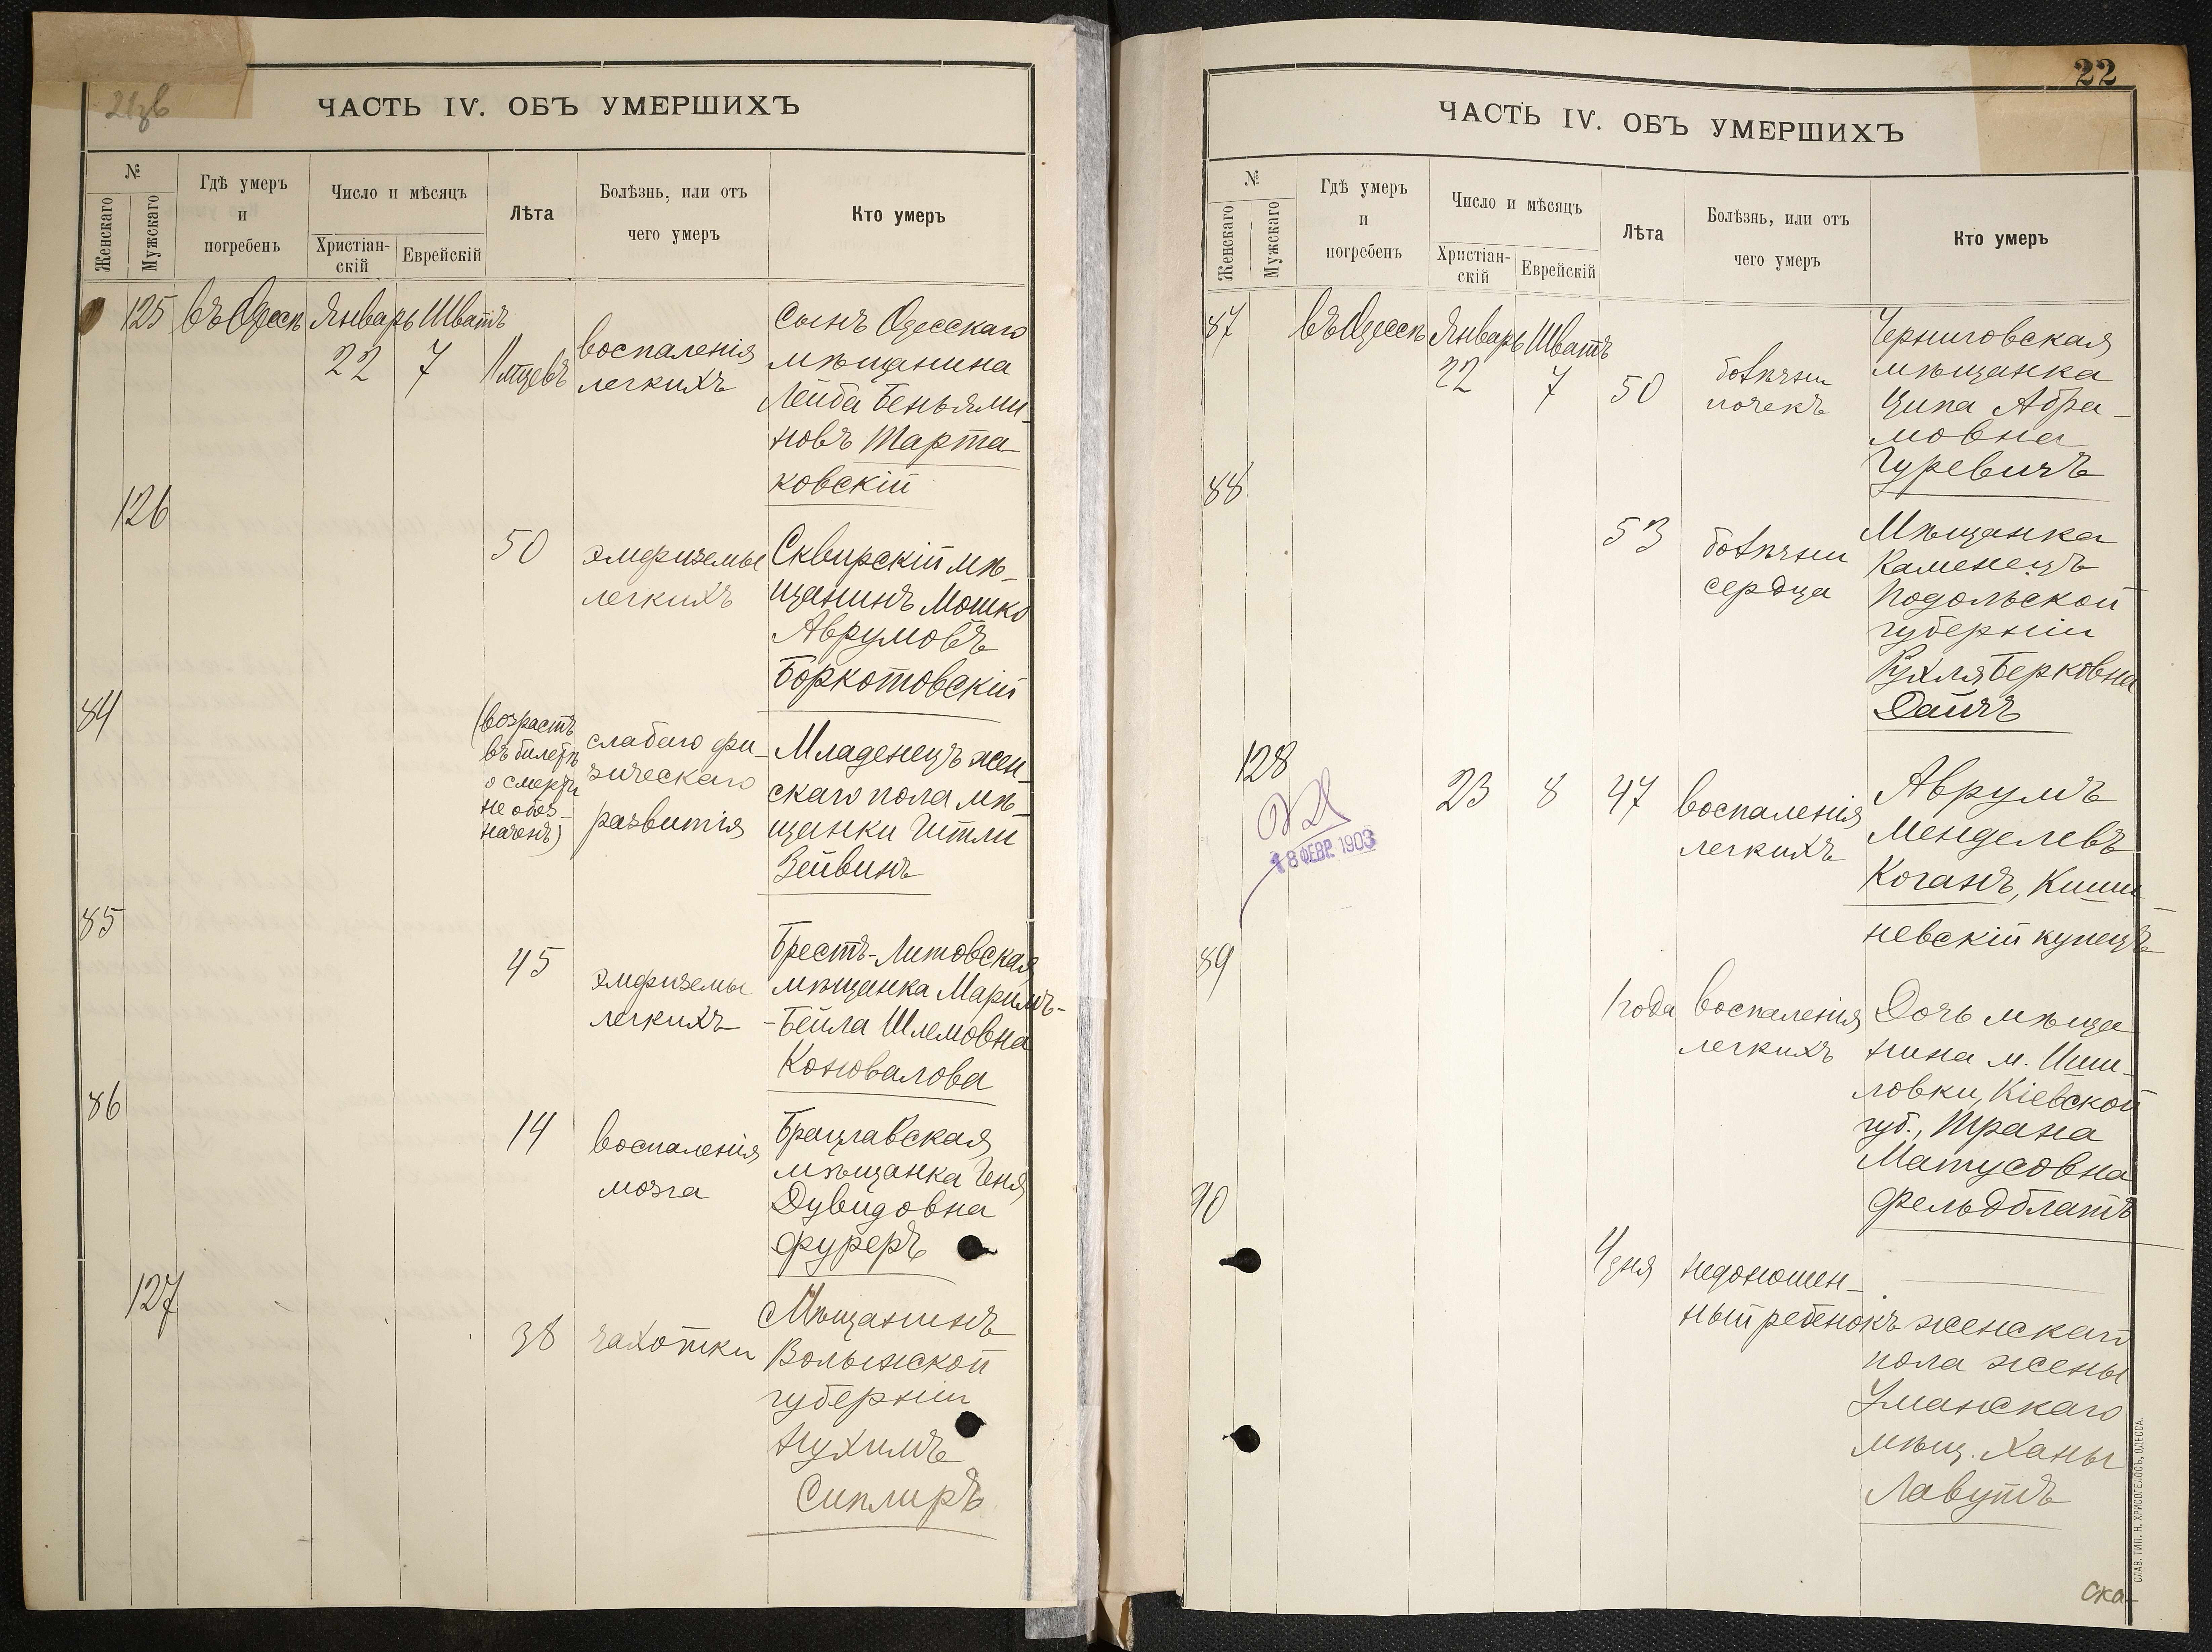 21зв
ЧАСТЬ IV. ОБЪ УМЕРШИХЪ
№
Женскаго
Мужскаго
Гдѣ умеръ
и
погребенъ
Число и мѣсяцъ
Христіан-
скій
Еврейскій
Лѣта
Болѣзнь, или отъ
чего умеръ
Кто умеръ
125 въ Одессѣ Январь Шватъ
22 7 11 мцевъ
воспаленія
легкихъ
Сынъ Одесскаго
мѣщанина
Лейба Беньями-
новъ Тарта-
ковскій
126
50
эмфиземы
легкихъ
Сквирскій мѣ-
щанинъ Мошко
Аврумовъ
Боркотовскій
84
(возрастъ
въ билетѣ
о смерти
не обоз-
наченъ)
слабаго фи-
зическаго
развитія
Младенецъ жен-
скаго пола мѣ-
щанки Гитли
Зейвинъ
85
45
эмфиземы
легкихъ
Брестъ-Литовская
мѣщанка Маримъ-
-Бейла Шлемовна
Коновалова
86
14
воспаленія
мозга
Брацлавская
мѣщанка Геня
Дувидовна
Фуреръ
127
38
чахотки
Мѣщанинъ
Волынской
губерніи
Нухимъ
Сиплиръ
22
ЧАСТЬ IV. ОБЪ УМЕРШИХЪ
№
Женскаго
Мужскаго
Гдѣ умеръ
и
погребенъ
Число и мѣсяцъ
Христіан-
скій
Еврейскій
Лѣта
Болѣзнь, или отъ
чего умеръ
Кто умеръ
87 въ Одессѣ Январь Шватъ
22 7 50
болѣзни
почекъ
Черниговская
мѣщанка
Ципа Абра-
мовна
Гуревичъ
88
53
болѣзни
сердца
Мѣщанка
Каменецъ
Подольской
губерніи
Рухля Берковна
Дайчъ
128
18 ФЕВР. 1903
23 8 47
воспаленія
легкихъ
Аврумъ
Менделевъ
Коганъ, Киши-
невскій купецъ
89
1 года
воспаленія
легкихъ
Дочь мѣща-
нина м.
ловки, Кіевской
губ., Трана
Матусовна
Фельдблатъ
90
4 дня
недоношен-
ный ребенокъ женскаго
пола жены
Уманскаго
мѣщ. Ханы
Лавутъ
Ска-
СЛАВ. ТИП. Н. ХРИСОГЕЛОСЪ, ОДЕССА.